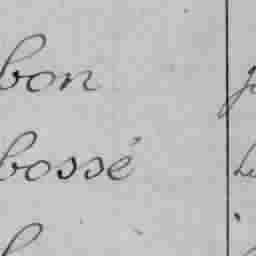 bon
bossé